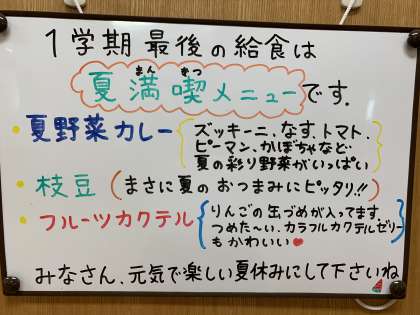 1学期 最後の給食は
まんきつ
夏満喫メニューです.
・夏野菜カレー
ズッキーニ、なす、トマト、
ピーマン、かぼちゃなど
夏の彩り野菜がいっぱい
・枝豆(まさに夏のおつまみにピッタリ!!)
・フルーツカクテル
りんごの缶づめが入ってます
つめた〜い、カラフルカクテルゼリー
もかわいい♥
みなさん、元気で楽しい夏休みにして下さいね